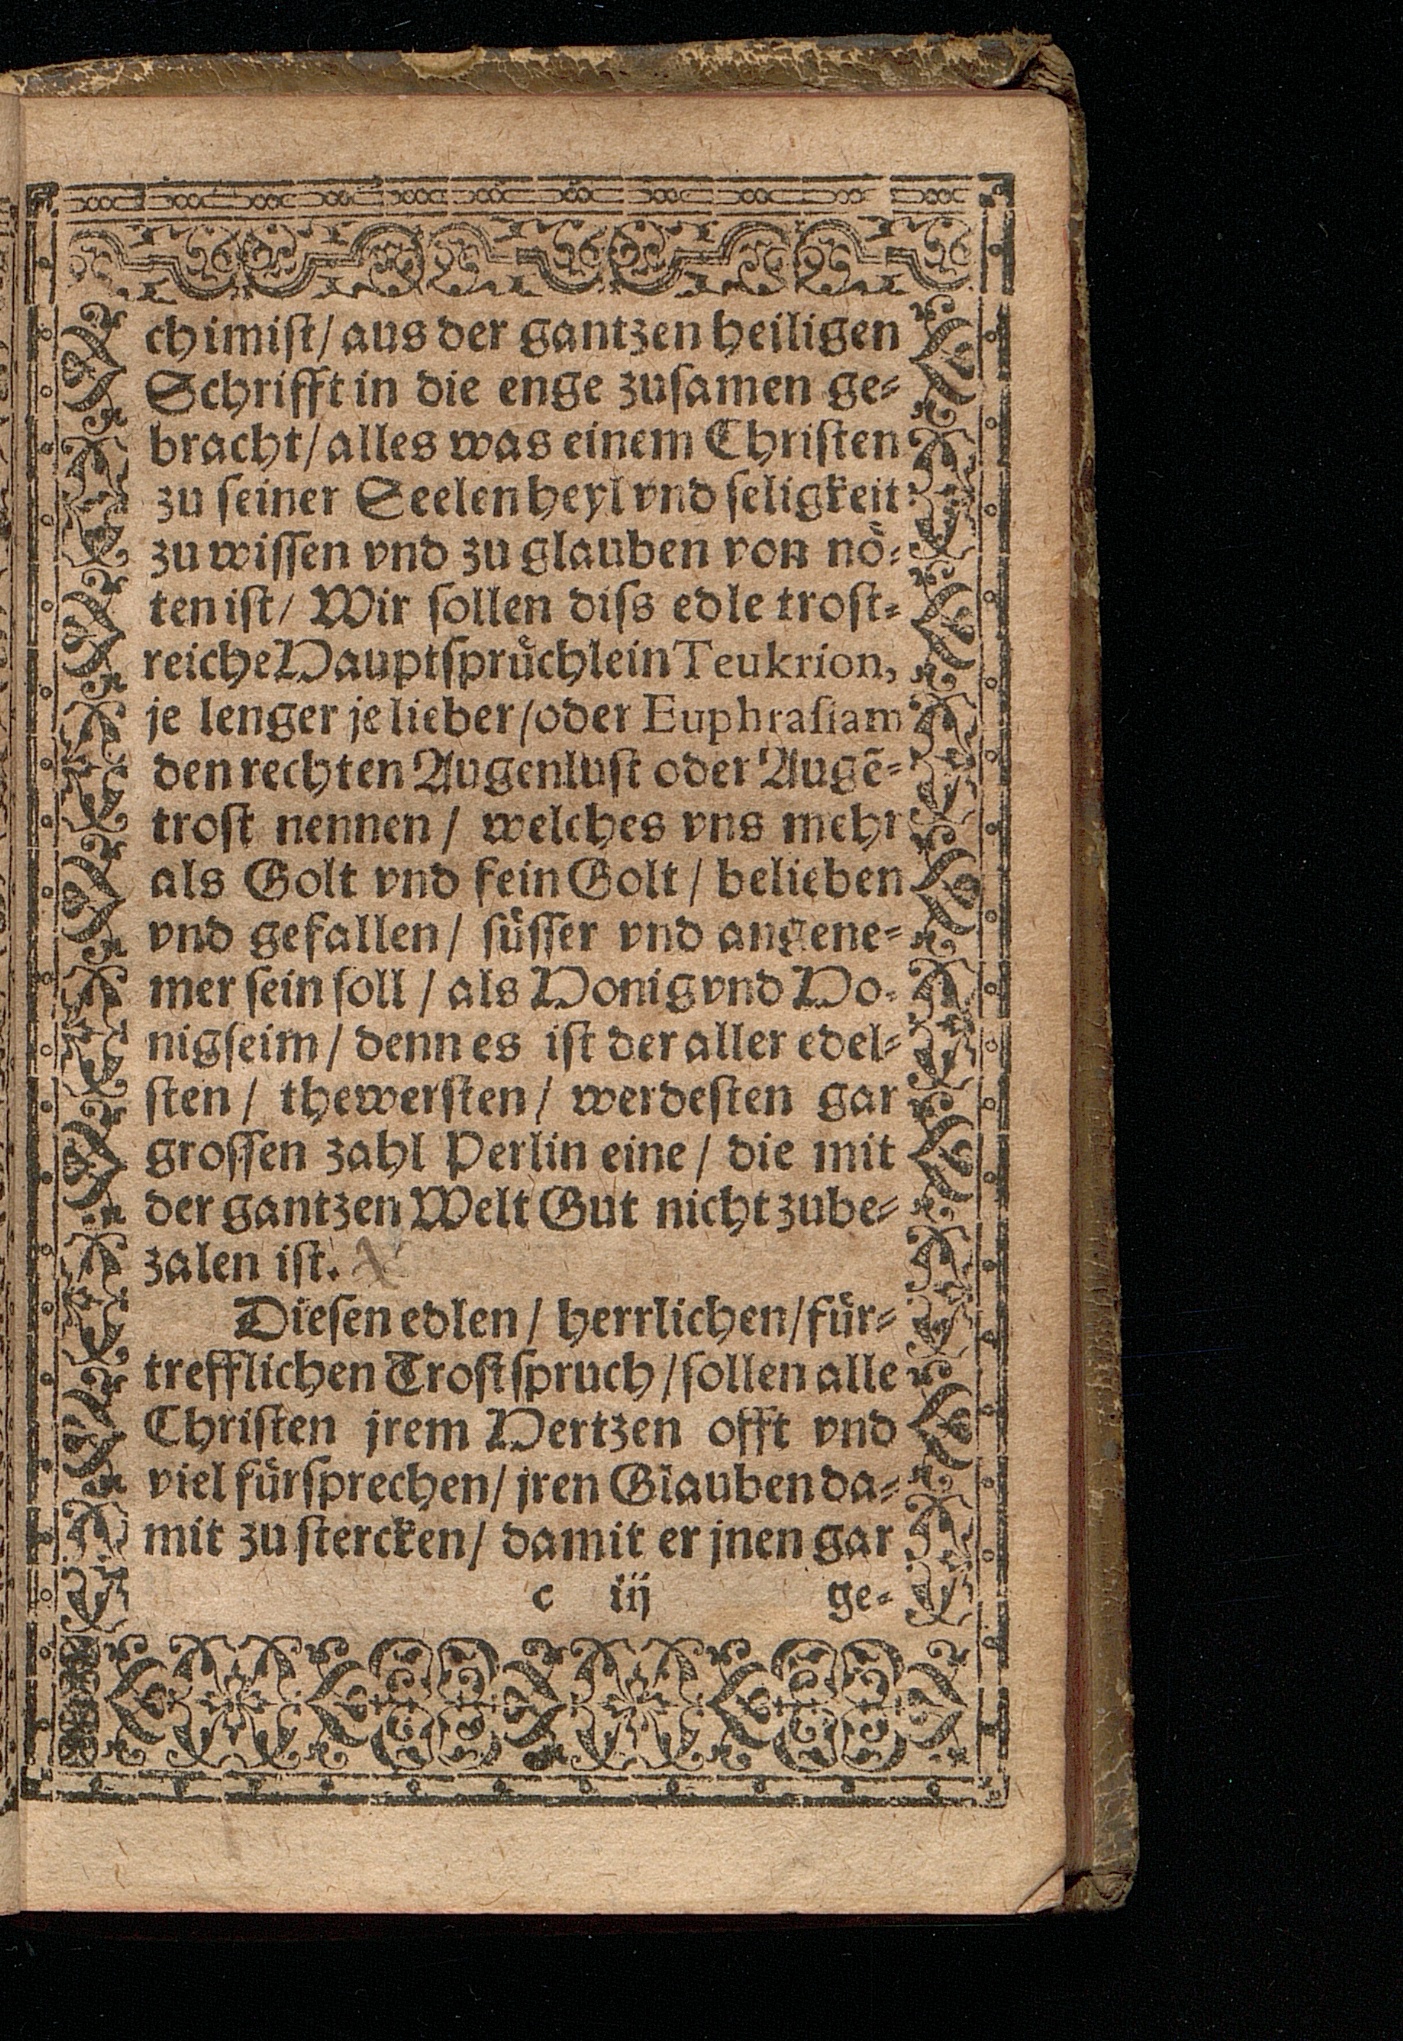 chimiſt/ aus der gantzen heiligen
Schrifft in die enge zuſamen ge⸗
bracht/ alles was einem Chriſten
zu ſeiner Seelen heyl vnd ſeligkeit
zu wiſſen vnd zu glauben von noͤ⸗
ten iſt/ Wir ſollen diſs edle troſt⸗
reiche Hauptſpruͤchlein Teukrion,
je lenger je lieber/ oder Euphraſiam
den rechten Augenluſt oder Augẽ⸗
troſt nennen/ welches vns mehr
als Golt vnd fein Golt/ belieben
vnd gefallen/ ſuͤſſer vnd angene⸗
mer ſein ſoll/ als Honig vnd Ho⸗
nigſeim/ denn es iſt der aller edel⸗
ſten/ thewerſten/ werdeſten gar
groſſen zahl Perlin eine/ die mit
der gantzen Welt Gut nicht zube⸗
zalen iſt.
Dieſen edlen/ herrlichen/ fuͤr⸗
trefflichen Troſtſpruch/ ſollen alle
Chriſten jrem Hertzen offt vnd
viel fuͤrſprechen/ jren Glauben da⸗
mit zu ſtercken/ damit er jnen gar
c iij ge⸗